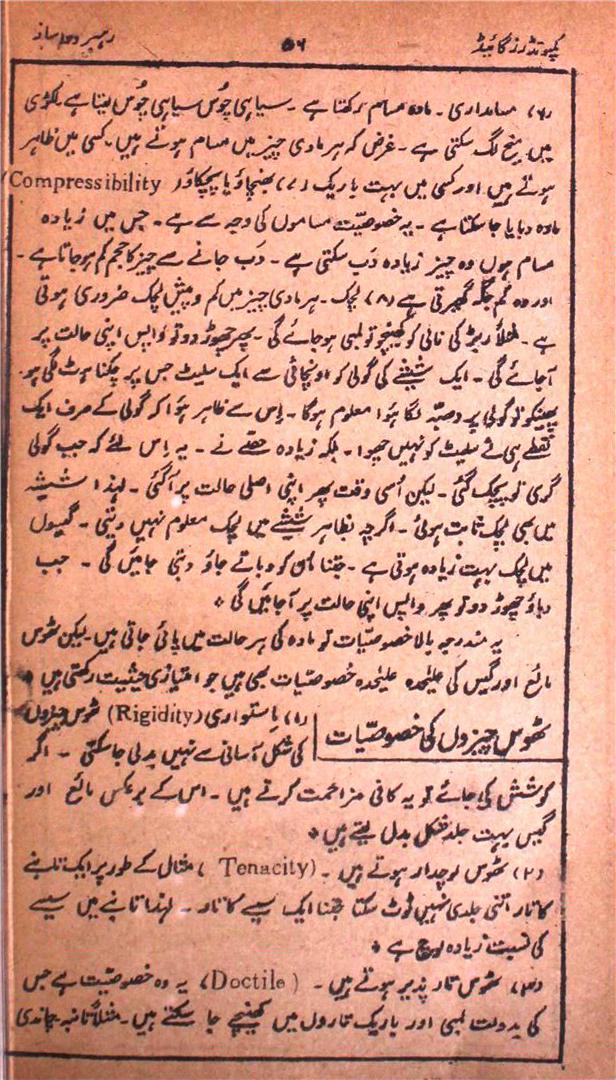 کمپونڈرز گائیڈ ۵۶ رہبر دوا ساز
(۶) مسامداری۔ مادہ مسام رکھتا ہے۔ سیاہی چُوس سیاہی چُوس لیتا ہے۔ لکڑی
میں میخ لگ سکتی ہے۔ غرض کہ ہر مادی چیز میں مسام ہوتے ہیں۔ کسی میں ظاہر
ہوتے ہیں اور کسی میں بہت باریک (۷) بھنچاؤ یا پچکاؤ (Compressibility)
مادہ دبایا جا سکتا ہے۔ یہ خصوصیّت مساموں کی وجہ سے ہے۔ جس میں زیادہ
مسام ہوں وہ چیز زیادہ دَب سکتی ہے۔ دَب جانے سے چیز کا حجم کم ہو جاتا ہے۔
اور وہ کم جگہ گھیرتی ہے (۸) لچک۔ ہر مادی چیز میں کم و بیش لچک ضروری ہوتی
ہے۔ مثلاً ربڑ کی نالی کو کھینچو تو لمبی ہو جائے گی۔ پھر چھوڑ دو تو واپس اپنی حالت پر
آ جائے گی۔ ایک شیشے کی گولی کو اونچائی سے ایک سلیٹ جس پر چکناہٹ لگی ہو۔
پھینکو تو گولی پر دھبّہ لگا ہُوا معلوم ہوگا۔ اِس سے ظاہر ہُوا کہ گولی کے صرف ایک
نقطے ہی نے سلیٹ کو نہیں چھوا۔ بلکہ زیادہ حصّے نے۔ یہ اِس لئے کہ جب گولی
گری تو پچک گئی۔ لیکن اُسی وقت پھر اپنی اصلی حالت پر آ گئی۔ لہٰذا شیشہ
میں بھی لچک ثابت ہوئی۔ اگرچہ بظاہر شیشے میں لچک معلوم نہیں دیتی۔ گیسوں
میں لچک بہت زیادہ ہوتی ہے۔ جتنا ان کو دباتے جاؤ دبتی جائیں گی۔ جب
دباؤ چھوڑ دو تو پھر واپس اپنی حالت پر آ جائیں گی۔
یہ مندرجہ بالا خصوصیّات تو مادہ کی ہر حالت میں پائی جاتی ہیں۔ لیکن ٹھوس
مائع اور گیس کی علیٰحدہ علیٰحدہ خصُوصیّات بھی ہیں جو امتیازی حیثیت رکھتی ہیں۔
ٹھوس چیزوں کی خصوصیّات
(۱) اِستواری (Rigidity) ٹھوس چیزوں
کی شکل آسانی سے نہیں بدلی جا سکتی۔ اگر
کوشش کی جائے تو یہ کافی مزاحمت کرتے ہیں۔ اس کے برعکس مائع اور
گیس بہت جلد شکل بدل لیتے ہیں۔
(۲) ٹھوس لوچدار ہوتے ہیں۔ (Tenacity) مثال کے طور پر ایک تانبے
کا تار اتنی جلدی نہیں ٹوٹ سکتا جتنا ایک سیسے کا تار۔ لہٰذا تانبے میں سیسے
کی نسبت زیادہ لوچ ہے۔
(۳) ٹھوس تار پذیر ہوتے ہیں۔ (Doctile) یہ وہ خصوصیّت ہے جس
کی بدولت لمبی اور باریک تاروں میں کھینچے جا سکتے ہیں۔ مثلاً تانبہ چاندی